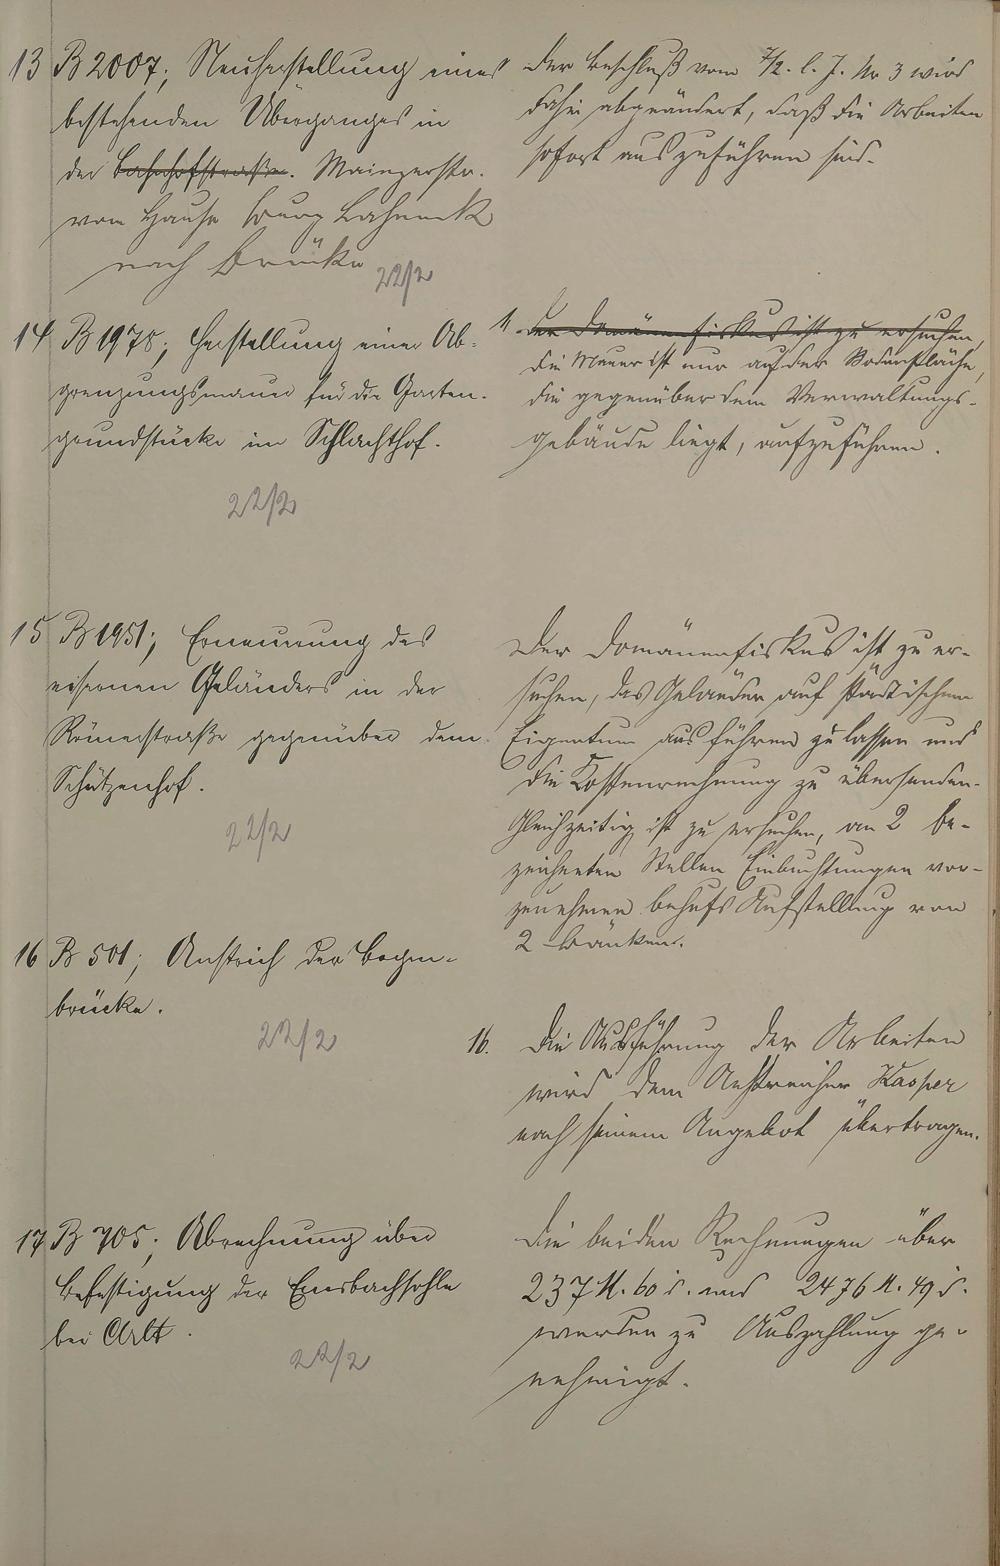 13 B 2007; Neuherstellung eines
bestehenden Überganges in
der Bahnhofstraße. Mainzerstr.
vom Hause Lahneck
nach Brücke
22/2
Der Beschluß vom 7/2. l. J. Nr 3 wird
dahin abgeändert, daß die Arbeiten
sofort auszuführen sind.
14 B 1978; Herstellung einer Ab-
grenzungsmauer für die Garten-
grundstücke im Schlachthof.
22/2
Der Domänenfiskus ist zu ersuchen,
die Mauer ist nur auf der Bodenfläche,
die gegenüber dem Verwaltungs-
gebäude liegt, aufzuführen.
15 B 1951; Erneuerung des
eisernen Geländers in der
Römerstraße gegenüber dem
Schützenhof.
22/2
Der Domänenfiskus ist zu er-
suchen, das Geländer auf städtischem
Eigentum ausführen zu lassen und
die Kostenrechnung zu übersenden.
Gleichzeitig ist zu ersuchen, an 2 be-
zeichneten Stellen Einbuchtungen vor-
zunehmen behufs Aufstellung von
2 Bänken.
16 B 501; Anstrich der Bogen-
brücke.
22/2
16. Die Ausführung der Arbeiten
wird dem Anstreicher Kasper
nach seinem Angebot übertragen.
17 B 705; Abrechnung über
Befestigung der Emsbachsohle
bei Arlt.
22/2
Die beiden Rechnungen über
237 M. 60 und 2476 M. 49
werden zu Auszahlung ge-
nehmigt.